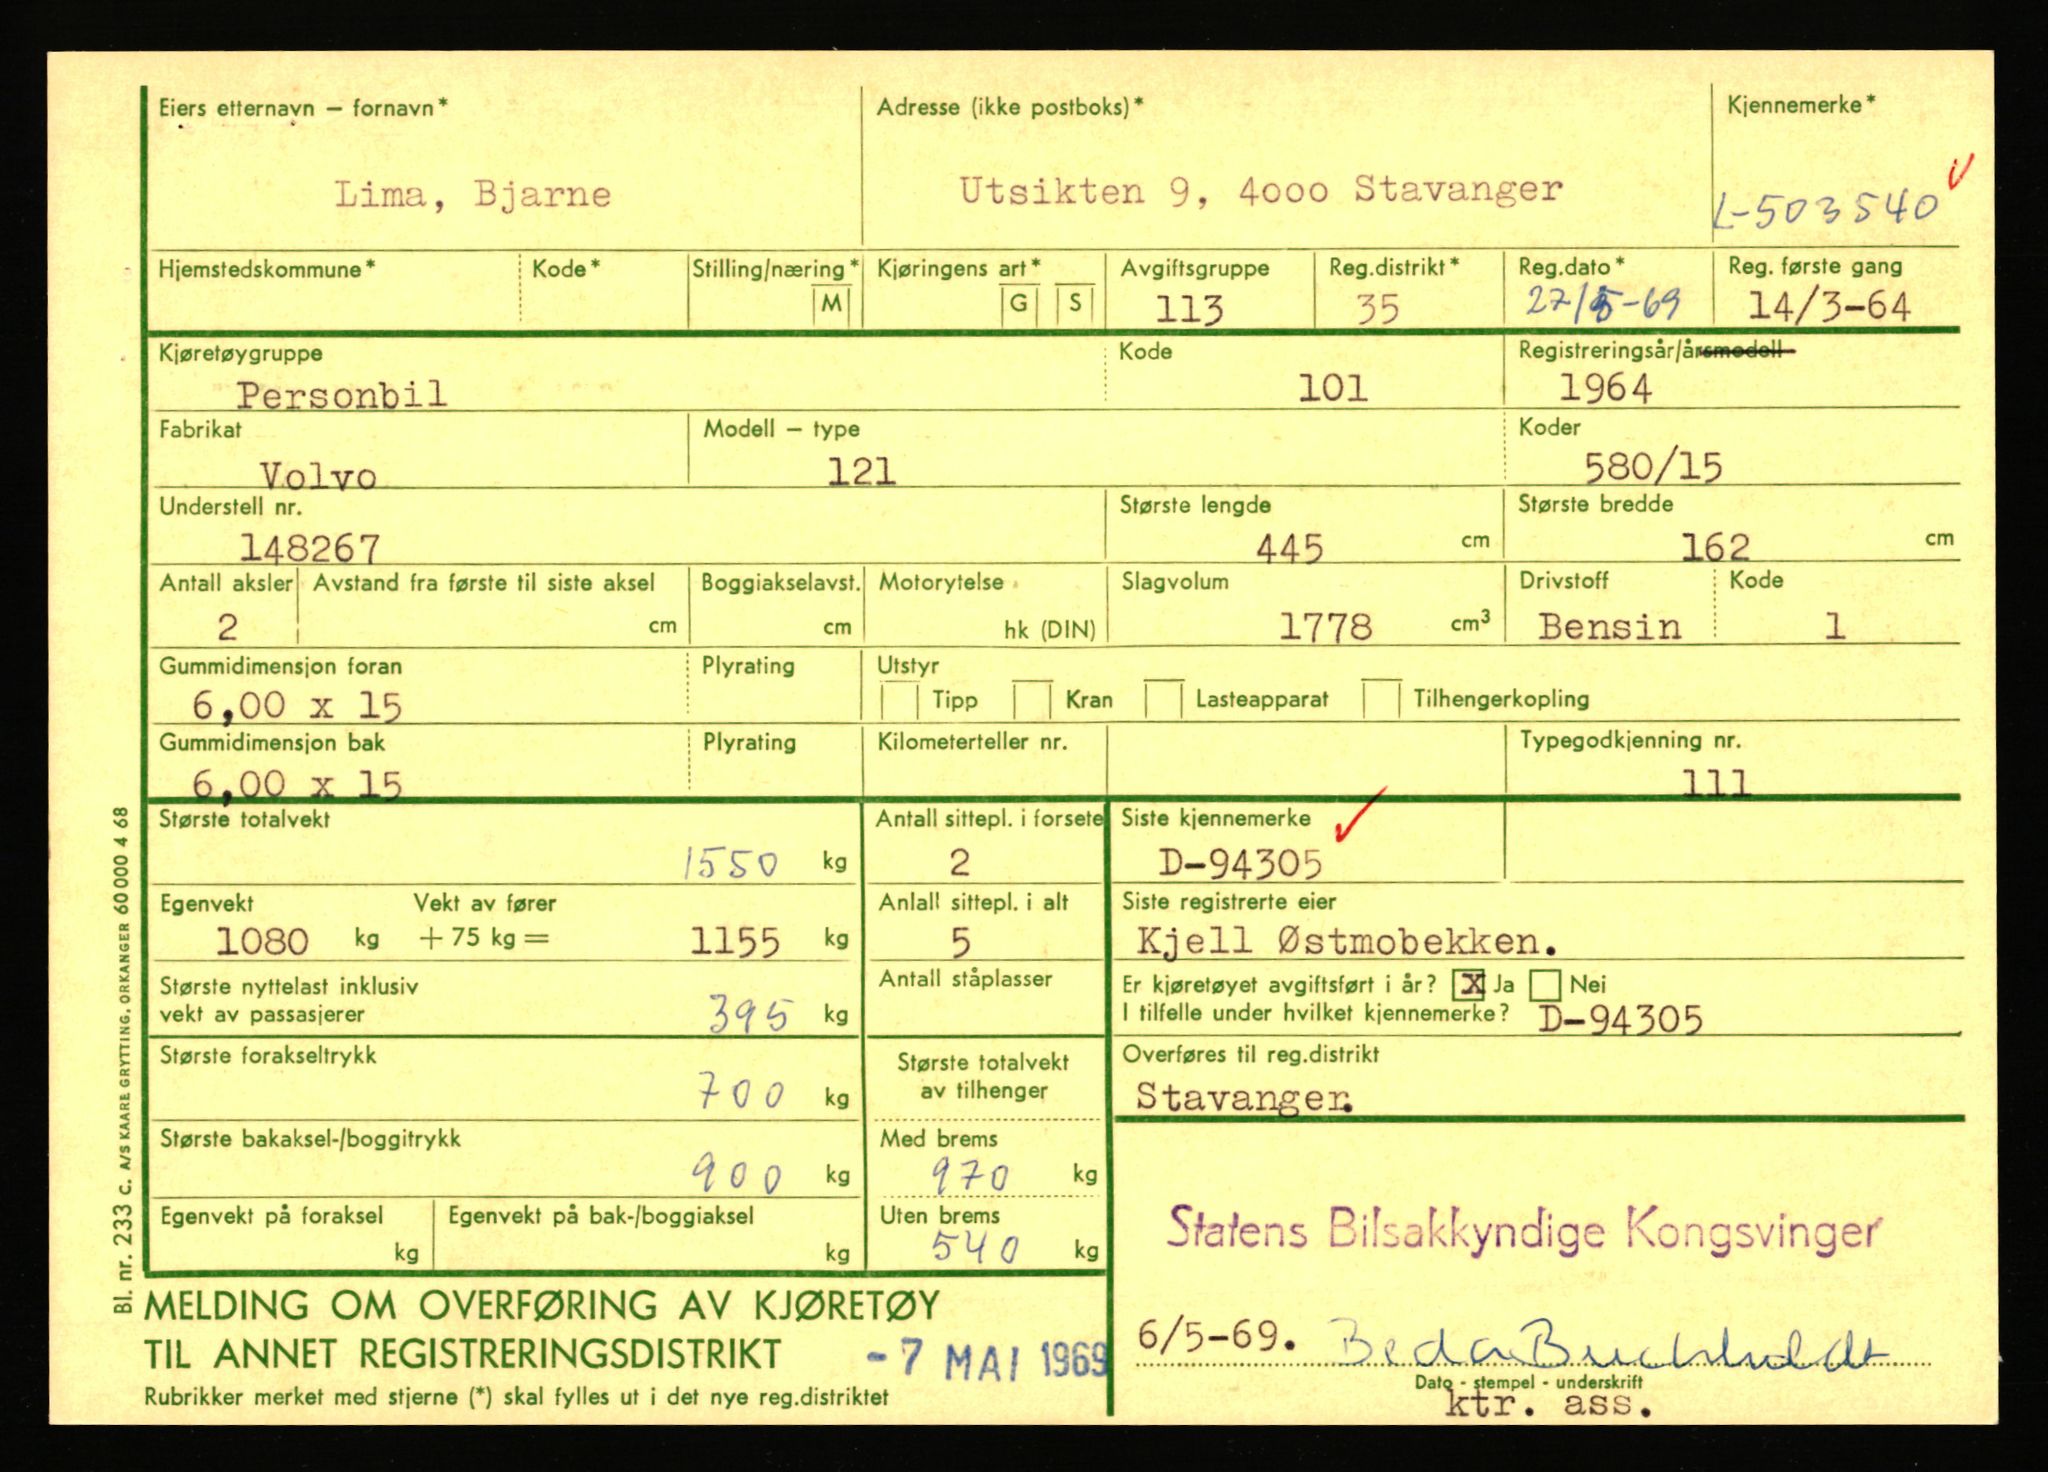 Eiers etternavn – fornavn* Adresse (ikke postboks)* Kjennemerke*
Lima, Bjarne Utsikten 9, 4000 Stavanger L-503540
Hjemstedskommune* Kode* Stilling/næring* Kjøringens art* Avgiftsgruppe Reg.distrikt* Reg.dato* Reg. første gang
M G S 113 35 27/5-69 14/3-64
Kjøretøygruppe Kode Registreringsår/årsmodell
Personbil 101 1964
Fabrikat Modell – type Koder
Volvo 121 580/15
Understell nr. Største lengde Største bredde
148267 445 cm 162 cm
Antall aksler Avstand fra første til siste aksel Boggiakselavst. Motorytelse Slagvolum Drivstoff Kode
2 cm cm hk (DIN) 1778 cm³ Bensin 1
Gummidimensjon foran Plyrating Utstyr
6,00 x 15 Tipp Kran Lasteapparat Tilhengerkopling
Gummidimensjon bak Plyrating Kilometerteller nr. Typegodkjenning nr.
6,00 x 15 111
Største totalvekt Antall sittepl. i forsete Siste kjennemerke
1550 kg 2 D-94305
Egenvekt Vekt av fører Anlall sittepl. i alt Siste registrerte eier
1080 kg + 75 kg = 1155 kg 5 Kjell Østmobekken.
Største nyttelast inklusiv Antall ståplasser Er kjøretøyet avgiftsført i år? X Ja Nei
vekt av passasjerer 395 kg I tilfelle under hvilket kjennemerke? D-94305
Største forakseltrykk Største totalvekt Overføres til reg.distrikt
700 kg av tilhenger Stavanger.
Største bakaksel-/boggitrykk Med brems
900 kg 970 kg
Egenvekt på foraksel Egenvekt på bak-/boggiaksel Uten brems Statens Bilsakkyndige Kongsvinger
kg kg 540 kg
MELDING OM OVERFØRING AV KJØRETØY
TIL ANNET REGISTRERINGSDISTRIKT - 7 MAI 1969 6/5-69. Beda Buchholdt
Rubrikker merket med stjerne (*) skal fylles ut i det nye reg.distriktet Dato - stempel - underskrift
ktr. ass.
Bl. nr. 233 C. A/S KAARE GRYTTING, ORKANGER 60 000 4 68